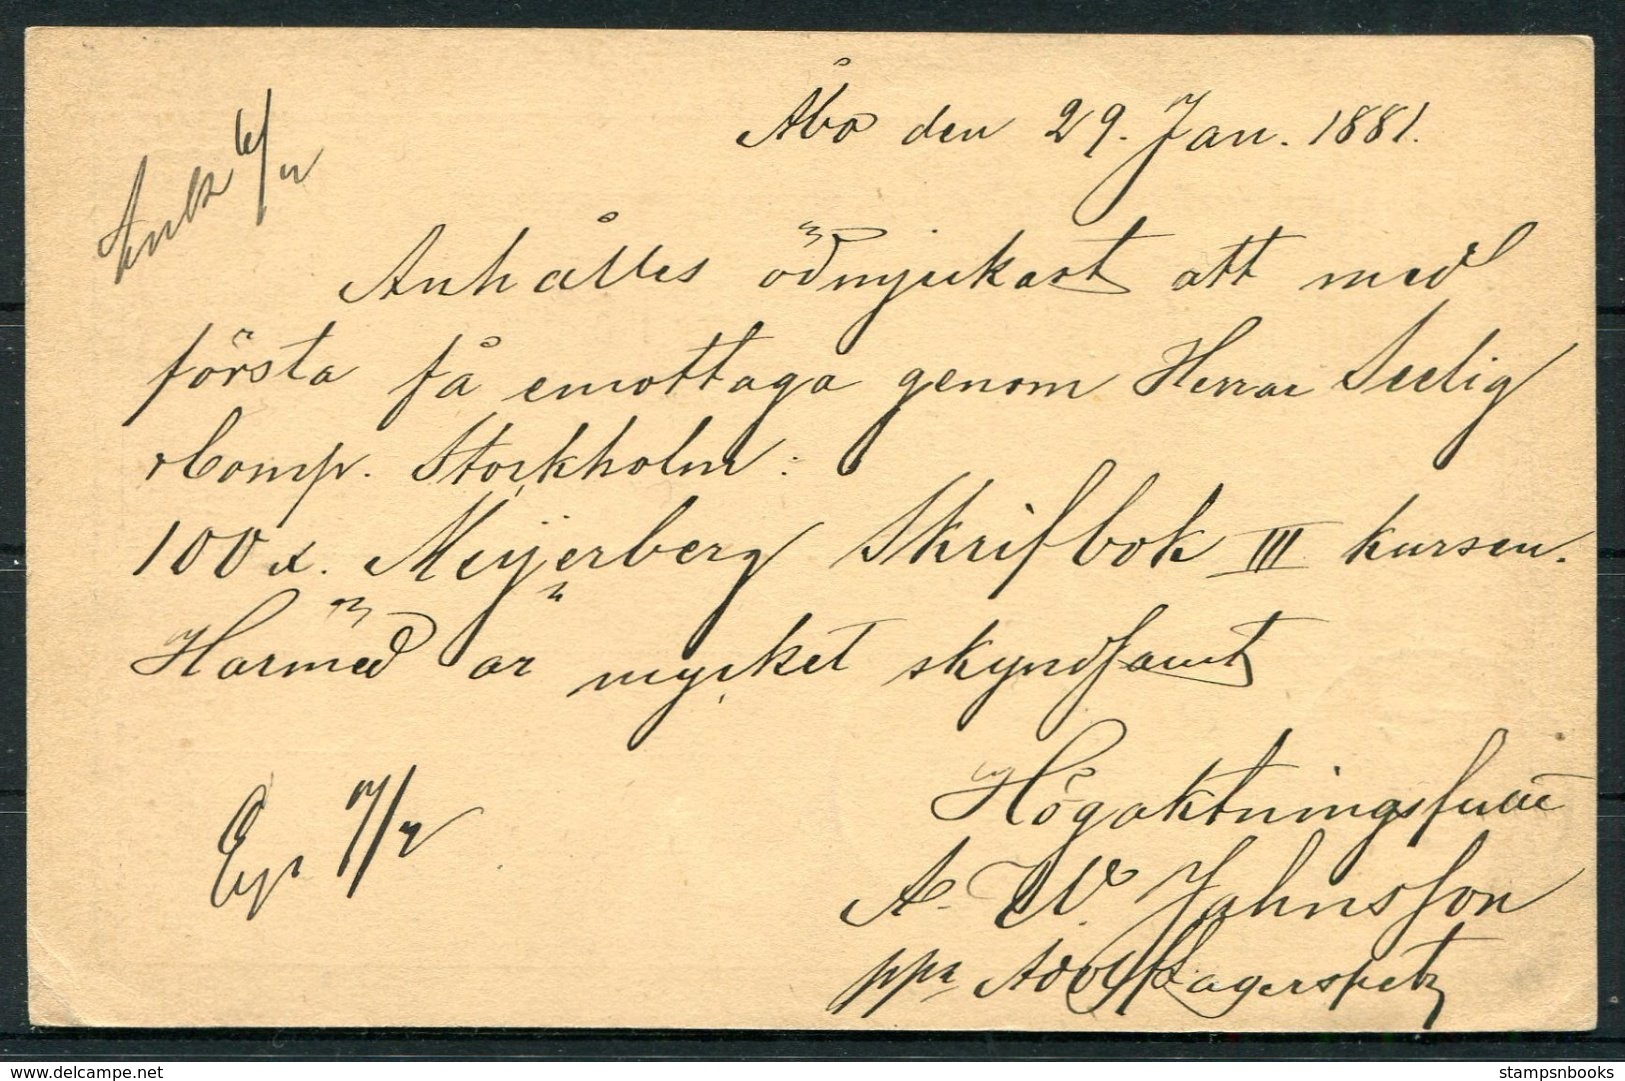 Åbo den 29. Jan. 1881.
Ank 6/2
Anhålles ödmjukast att med
första få emottaga genom Herrar Seelig
& Comp. Stockholm:
100 x. Meijerberg Skrifbok III kursen.
Härmed är mycket skyndsamt
Högaktningsfullt
Exp 7/2
A. W. Jahnsson
ppr Adolf Lagerspetz
delcampe.net
stampsnbooks